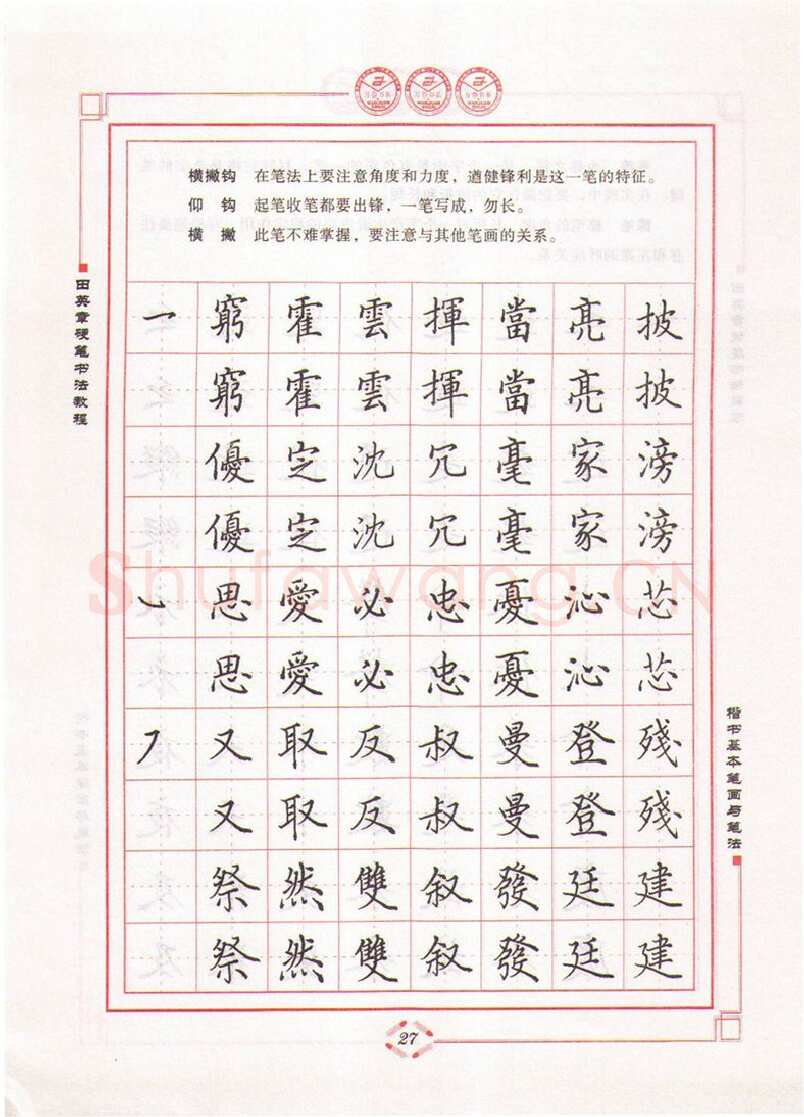 横撇钩 在笔法上要注意角度和力度，遒健锋利是这一笔的特征。
仰 钩 起笔收笔都要出锋，一笔写成，勿长。
横 撇 此笔不难掌握，要注意与其他笔画的关系。
田英章硬笔书法教程
窮霍雲揮當亮披
窮霍雲揮當亮披
優定沈冗毫家滂
優定沈冗毫家滂
思愛必忠憂沁芯
思愛必忠憂沁芯
又取反叔曼登殘
又取反叔曼登殘
祭然雙叙發廷建
祭然雙叙發廷建
楷书基本笔画与笔法
Shufawang.CN
27